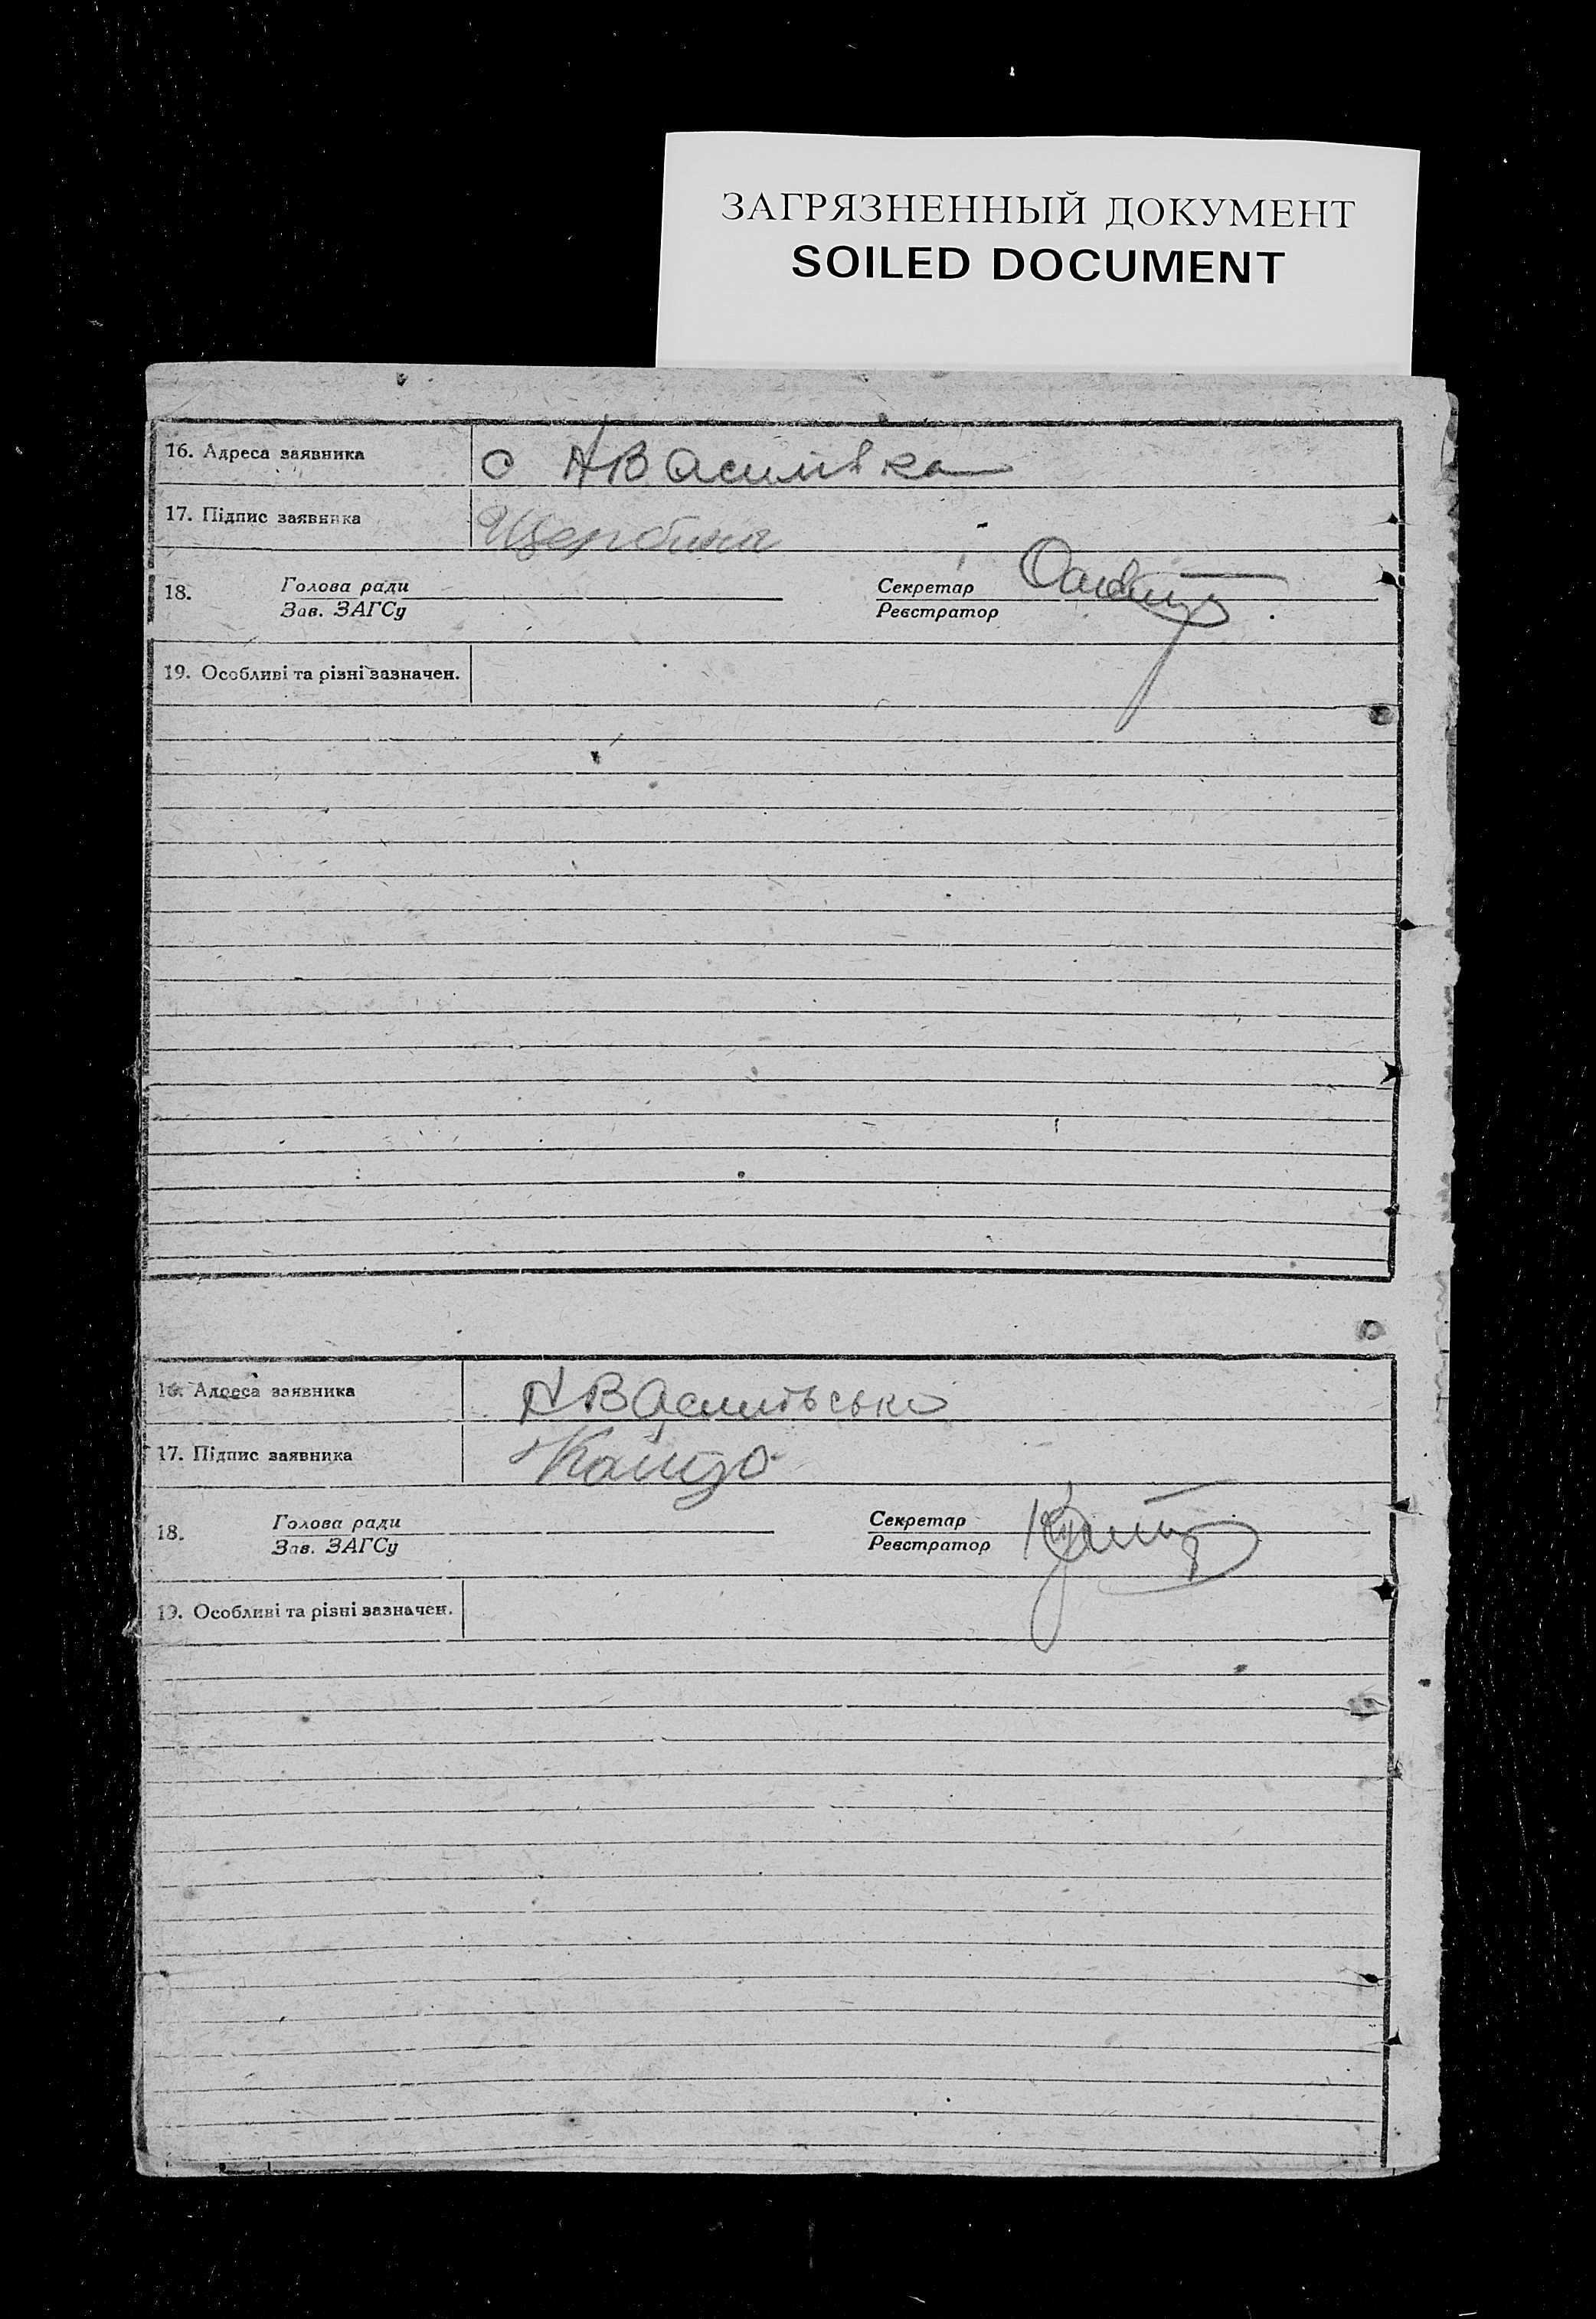 ЗАГРЯЗНЕННЫЙ ДОКУМЕНТ
SOILED DOCUMENT
16. Адреса заявника с НВасилівка
17. Підпис заявника Щербина
18. Голова ради Секретар
Зав. ЗАГСу Реєстратор
19. Особливі та різні зазначен.
16. Адреса заявника
17. Підпис заявника
18. Голова ради Секретар
Зав. ЗАГСу Реєстратор
19. Особливі та різні зазначен.